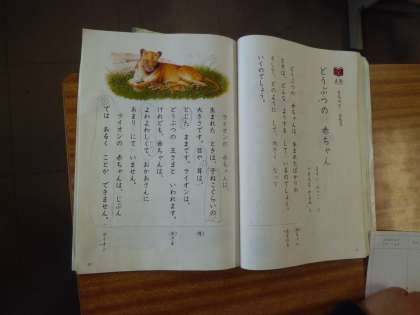 どうぶつの 赤ちゃん
どうぶつの 赤ちゃんは、生まれたばかりの
ときは、どんな ようすを して いるのでしょう。
そして、どのように して、大きく なって
いくのでしょう。
ライオンの 赤ちゃんは、
生まれた ときは、子ねこぐらいの
大きさです。目や 耳は、
とじた ままです。ライオンは、
どうぶつの 王さまと いわれます。
けれども、赤ちゃんは、
よわよわしくて、おかあさんに
あまり にて いません。
ライオンの 赤ちゃんは、じぶん
では あるく ことが できません。